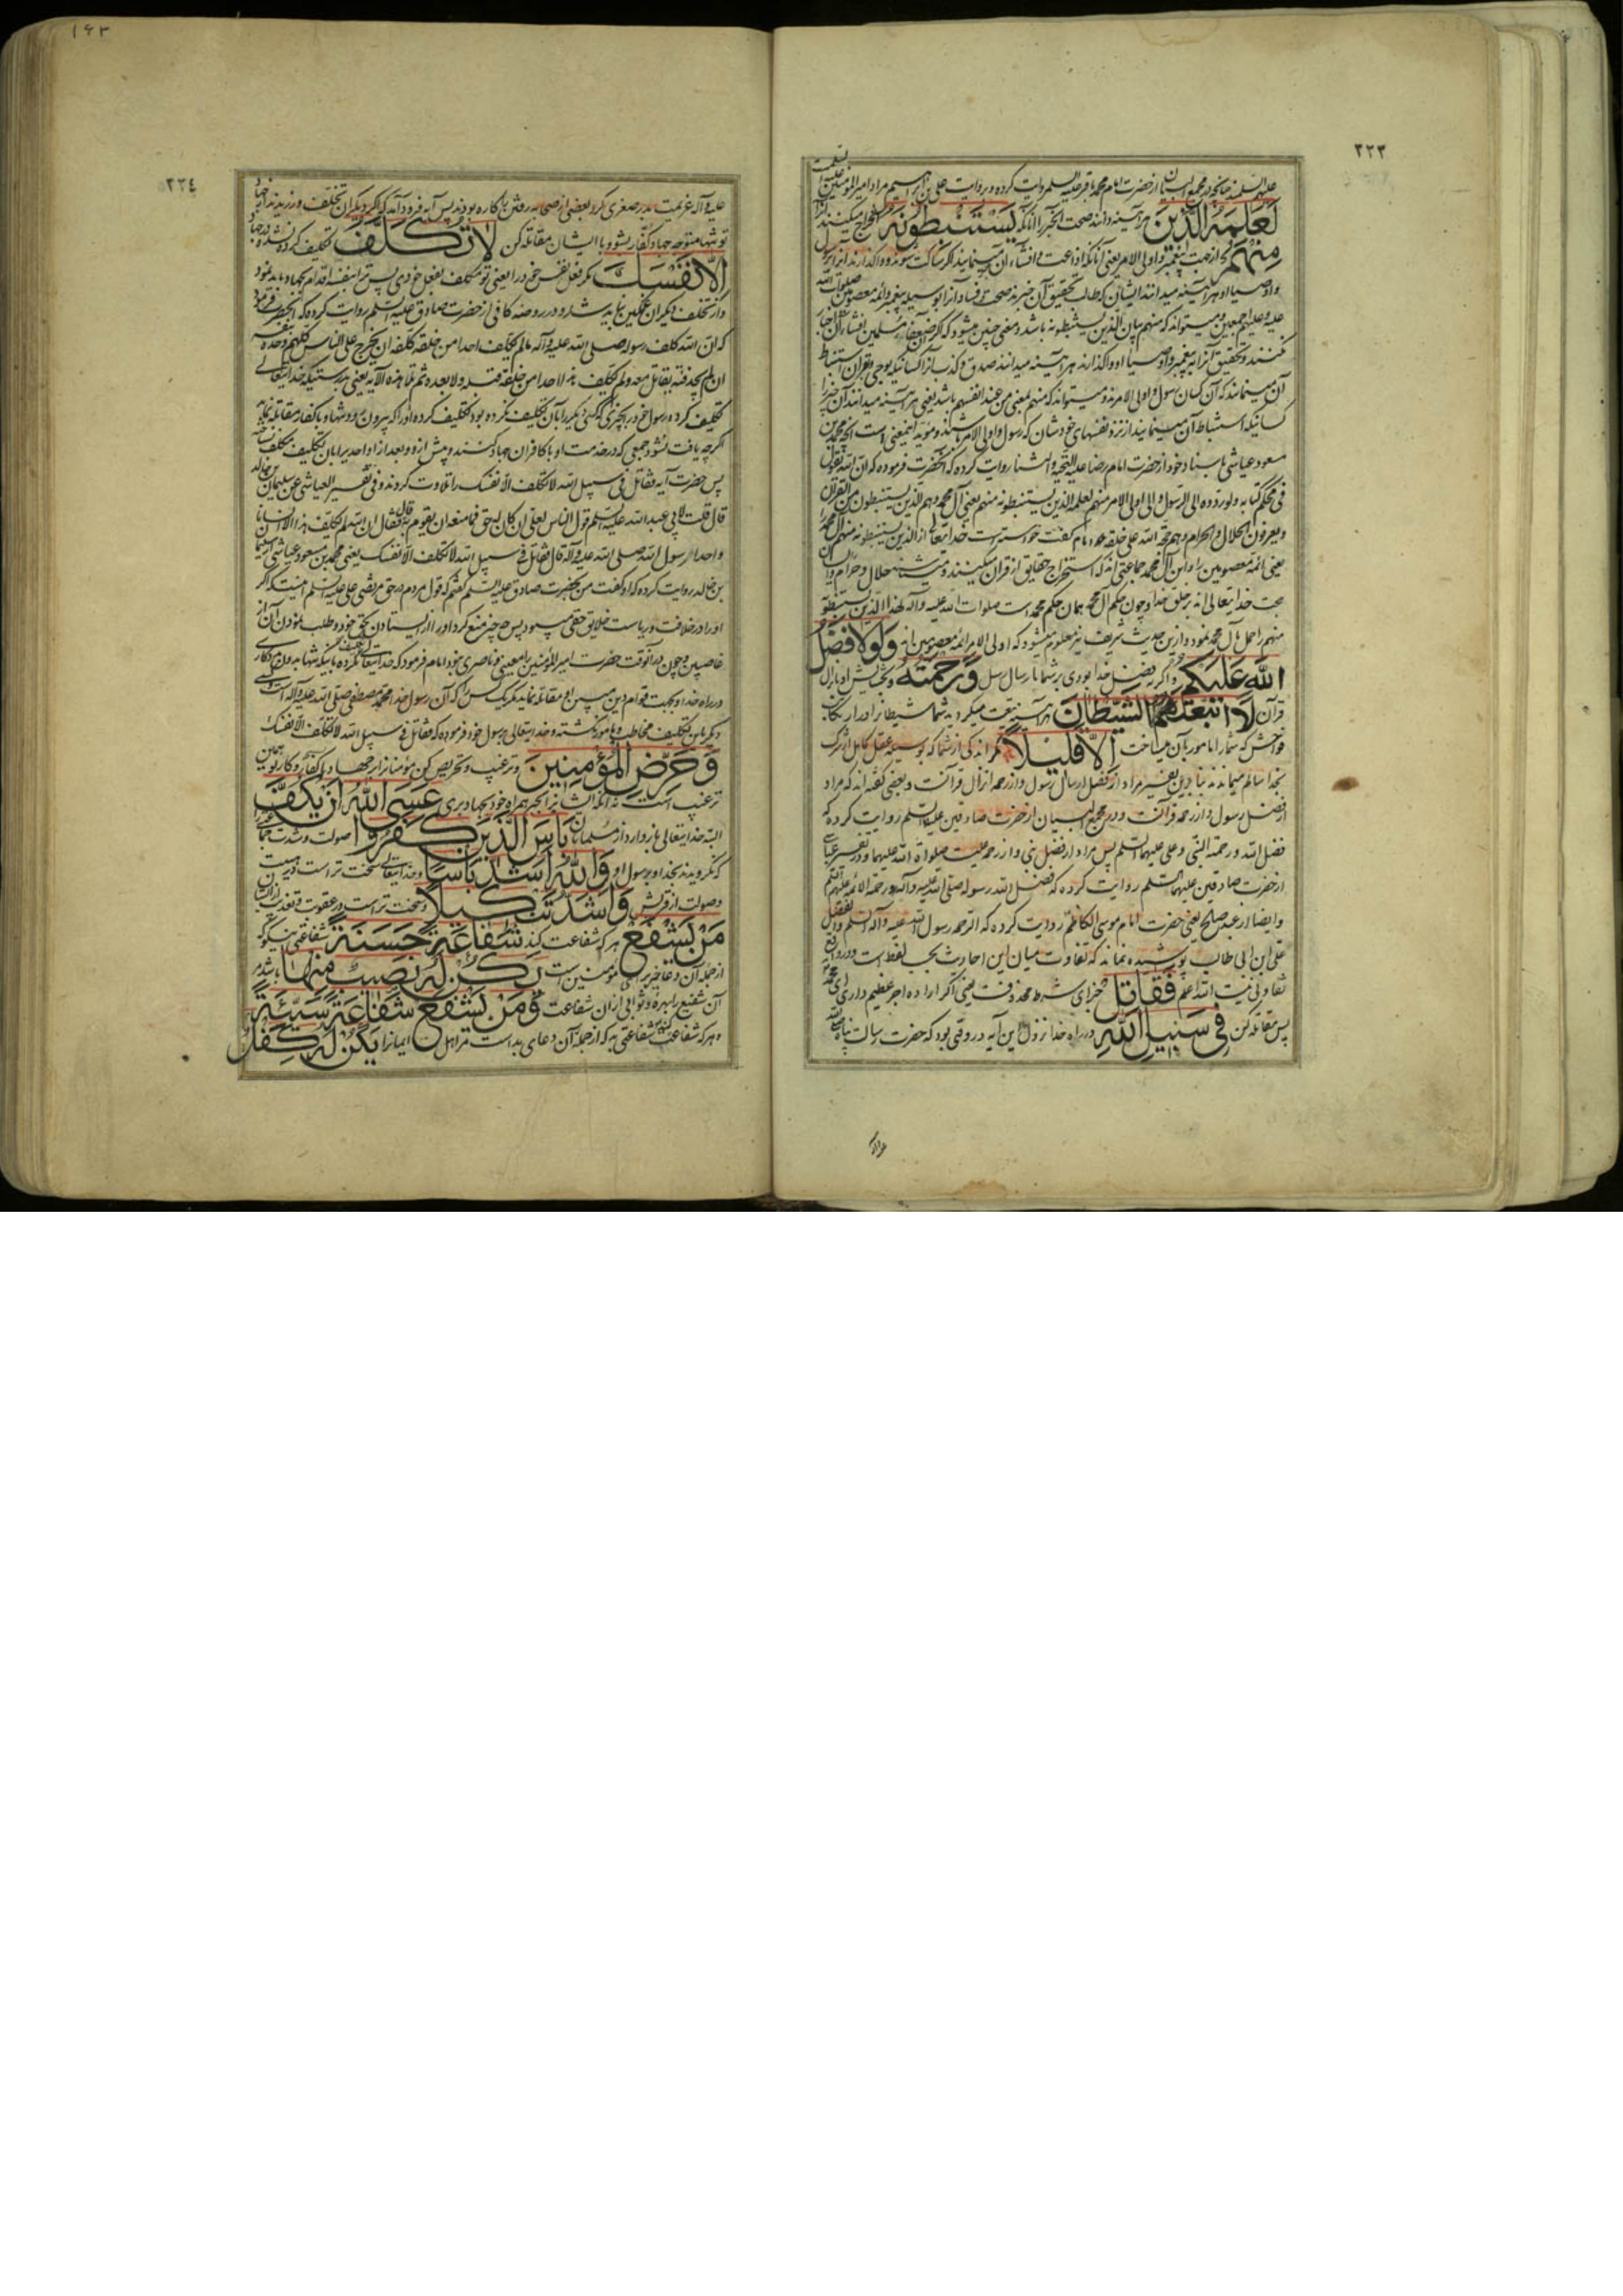 ٢٢٣
علیهم السلام چنانچه در مجمع البیان از حضرت امام محمد باقر علیه السلم روایت کرده و بروایت علی بن ابراهیم مراد امیر المؤمنین
لَعَلِمَهُ الَّذِينَ هر آینه دانند صحت آن خبر را آنانکه يَسْتَنْبِطُونَهُ
مِنْهُمْ از جهت پیغمبر و اولی الامر یعنی آنانکه اذاعت و افشاء آن مینمایند اگر ساکت شوند و واگذارند
و اوصیا او هر آینه میدانند ایشان که طالب تحقیق آن خبرند صحت و فساد آنرا بوسیله پیغمبر و ائمه معصومین صلوات الله
علیه و علیهم اجمعین و میتواند که منهم بیان الذین یستنبطونه باشد و معنی چنین میشود که اگر ضعفای مسلمین افشاء آن اخبار
نکنند و تحقیق آنرا به پیغمبر و اوصیا او واگذارند هر آینه میدانند صدق و کذب آنرا کسانیکه بوحی و قرآن استنباط
آن مینمایند که آن کسان رسول و اولی الامرند و میتواند که منهم بمعنی من عند انفسهم باشد یعنی هر آینه میدانند آن خبر را
کسانیکه استنباط آن مینمایند از نزد نفسهای خودشان که رسول و اولی الامر باشند و مؤید اینمعنی است آنچه محمد بن
مسعود عیاشی باسناد خود از حضرت امام رضا علیه التحیة و الثنا روایت کرده که آنحضرت فرموده که ان الله یقول
فی محکم کتابه و لو ردوه الی الرسول و الی اولی الامر منهم لعلمه الذین یستنبطونه منهم یعنی آل محمد و هم الذین یستنبطون من القرآن
و یعرفون الحلال و الحرام و هم حجة الله علی خلقه امام گفت خواسته است خدایتعالی از الذین یستنبطونه منهم آل محمد را
یعنی ائمه معصومین را و این آل محمد جماعتی اند که استخراج حقایق از قرآن میکنند و میشناسند حلال و حرام را و ایشان
حجت خدایتعالی اند بر خلق خدا و چون حکم آل محمد همان حکم محمد است صلوات الله علیه و آله لهذا الذین یستنبطونه
منهم را حمل بآل محمد نمود و ازین حدیث شریف نیز معلوم میشود که اولی الامر ائمه معصومین اند وَلَوْلَا فَضْلُ
اللَّهِ عَلَيْكُمْ و اگر نه فضل خدا بودی بر شما بارسال رسل وَرَحْمَتُهُ و بخشایش او بانزال
قرآن لَاتَّبَعْتُمُ الشَّيْطَانَ هر آینه تبعیت میکردید شما شیطانرا در ارتکاب
فواحش که شما را مامور بآن میساخت إِلَّا قَلِيلًا مگر اندکی از شما که بوسیله عقل کامل از شرک
بخدا سالم میماندند بنابرین تفسیر مراد از فضل ارسال رسول و از رحمة انزال قرآنست و بعضی گفته اند که مراد
از فضل رسول و از رحمة قرآنست و در مجمع البیان از حضرت صادقین علیهما السلم روایت کرده که
فضل الله و رحمته النبی و علی علیهما السلم پس مراد از فضل نبی و از رحمة علیست صلوات الله علیهما و در تفسیر عیاشی
از حضرت صادقین علیهما السلم روایت کرده که فضل الله رسوله صلی الله علیه و آله و رحمته الائمه علیهم السلم
و ایضا از عبد صالح یعنی حضرت امام موسی الکاظم روایت کرده که الرحمة رسول الله علیه و آله السلم و الفضل
علی ابن ابی طالب پوشیده نماند که تفاوت میان این احادیث بحسب لفظ است و در واقع
تفاوتی نیست الله اعلم فَقَاتِلْ جزای شرط محذوفست یعنی اگر اراده اجر عظیم داری ای محمد
پس مقاتله کن فِي سَبِيلِ اللَّهِ در راه خدا نزول این آیه در وقتی بود که حضرت رسالت پناه
١٦٣
٢٢٤
علیه و آله عزیمت بدر صغری کرد و بعضی از صحابه رفتن را کاره بودند پس آیه فرود آمد که اگر دیگران تخلف ورزیدند از جهاد
تو تنها متوجه جهاد کفار بشو و با ایشان مقاتله کن لَا تُكَلَّفُ تکلیف کرده نشده در جهاد
إِلَّا نَفْسَكَ مگر فعل نفس خود را یعنی تو مکلف بفعل خودی پس ترا بنفسه اقدام بجهاد باید نمود
و از تخلف دیگران غمگین نباید شد و در روضه کافی از حضرت صادق علیه السلم روایت کرده که آنحضرت فرمود
که ان الله کلف رسوله صلی الله علیه و آله ما لم یکلف احدا من خلقه کلفه ان یخرج علی الناس کلهم وحده بنفسه
ان لم یجد فئة یقاتل معه و لم یکلف هذا احدا من خلقه قبله و لا بعده ثم تلا هذه الآیه یعنی بدرستیکه خدایتعالی
تکلیف کرده رسول خود را بچیزی که کسی دیگر را بآن تکلیف نکرده بود تکلیف کرده او را که بیرون رود تنها و با کفار مقاتله نماید
اگر چه یافت نشود جمعی که در خدمت او با کافران جهاد کنند و پیش ازو و بعد از او احدیرا بآن تکلیف مکلف نساخته
پس حضرت آیه فقاتل فی سبیل الله لا تکلف الا نفسک را تلاوت کردند و فی تفسیر العیاشی عن سلیمان بن خالد
قال قلت لابی عبد الله علیه السلم قول الناس لعلی ان کان له حق فما منعه ان یقوم به قال فقال ان الله لم یکلف هذا الا انسانا
واحدا رسول الله صلی الله علیه و آله قال فقاتل فی سبیل الله لا تکلف الا نفسک یعنی محمد بن مسعود عیاشی از سلیمان
بن خالد روایت کرده که او گفت من بحضرت صادق علیه السلم گفتم که قول مردم در حق مرتضی علی علیه السلم اینست که اگر
او را در خلافت و ریاست خلایق حقی میبود پس چه چیز منع کرد او را از ایستادن بحق خود و طلب نمودن آن از
غاصبین و چون در آنوقت حضرت امیر المؤمنین را معینی و ناصری نبود امام فرمود که خدایتعالی تکلیف نکرده باینکه تنها بدون مددکاری
در راه خدا و بجهت قوام دین مبین او مقاتله نماید مگر یک کس را که آن رسول خدا محمد مصطفی صلی الله علیه و آله است
دیگر باین تکلیف مخاطب و مامور نگشته و خدایتعالی برسول خود فرموده که فقاتل فی سبیل الله لا تکلف الا نفسک
وَحَرِّضِ الْمُؤْمِنِينَ و ترغیب و تحریص کن مؤمنانرا بر جهاد با کفار و کار تو همین
ترغیب است نه آنکه ایشانرا بجبر همراه خود بجهاد بری عَسَى اللَّهُ أَنْ يَكُفَّ
البته خدایتعالی باز دارد از مسلمانان بَأْسَ الَّذِينَ كَفَرُوا صولت و شدت
که نگرویدند بخدا و برسول او وَاللَّهُ أَشَدُّ بَأْسًا و خدایتعالی سخت تر است از هیبت
و صولت از قریش وَأَشَدُّ تَنْكِيلًا و سخت تر است در عقوبت و تعذیب از ایشان
مَنْ يَشْفَعْ هر که شفاعت کند شَفَاعَةً حَسَنَةً شفاعتی نیکو که
از جمله آن دعا خیر برای مؤمنین است يَكُنْ لَهُ نَصِيبٌ مِنْهَا باشد مر
آن شفیع را بهره و ثوابی از آن شفاعت وَمَنْ يَشْفَعْ شَفَاعَةً سَيِّئَةً
و هر که شفاعت کند شفاعتی بد که از جمله آن دعای بد است مر اهل ایمانرا يَكُنْ لَهُ كِفْلٌ